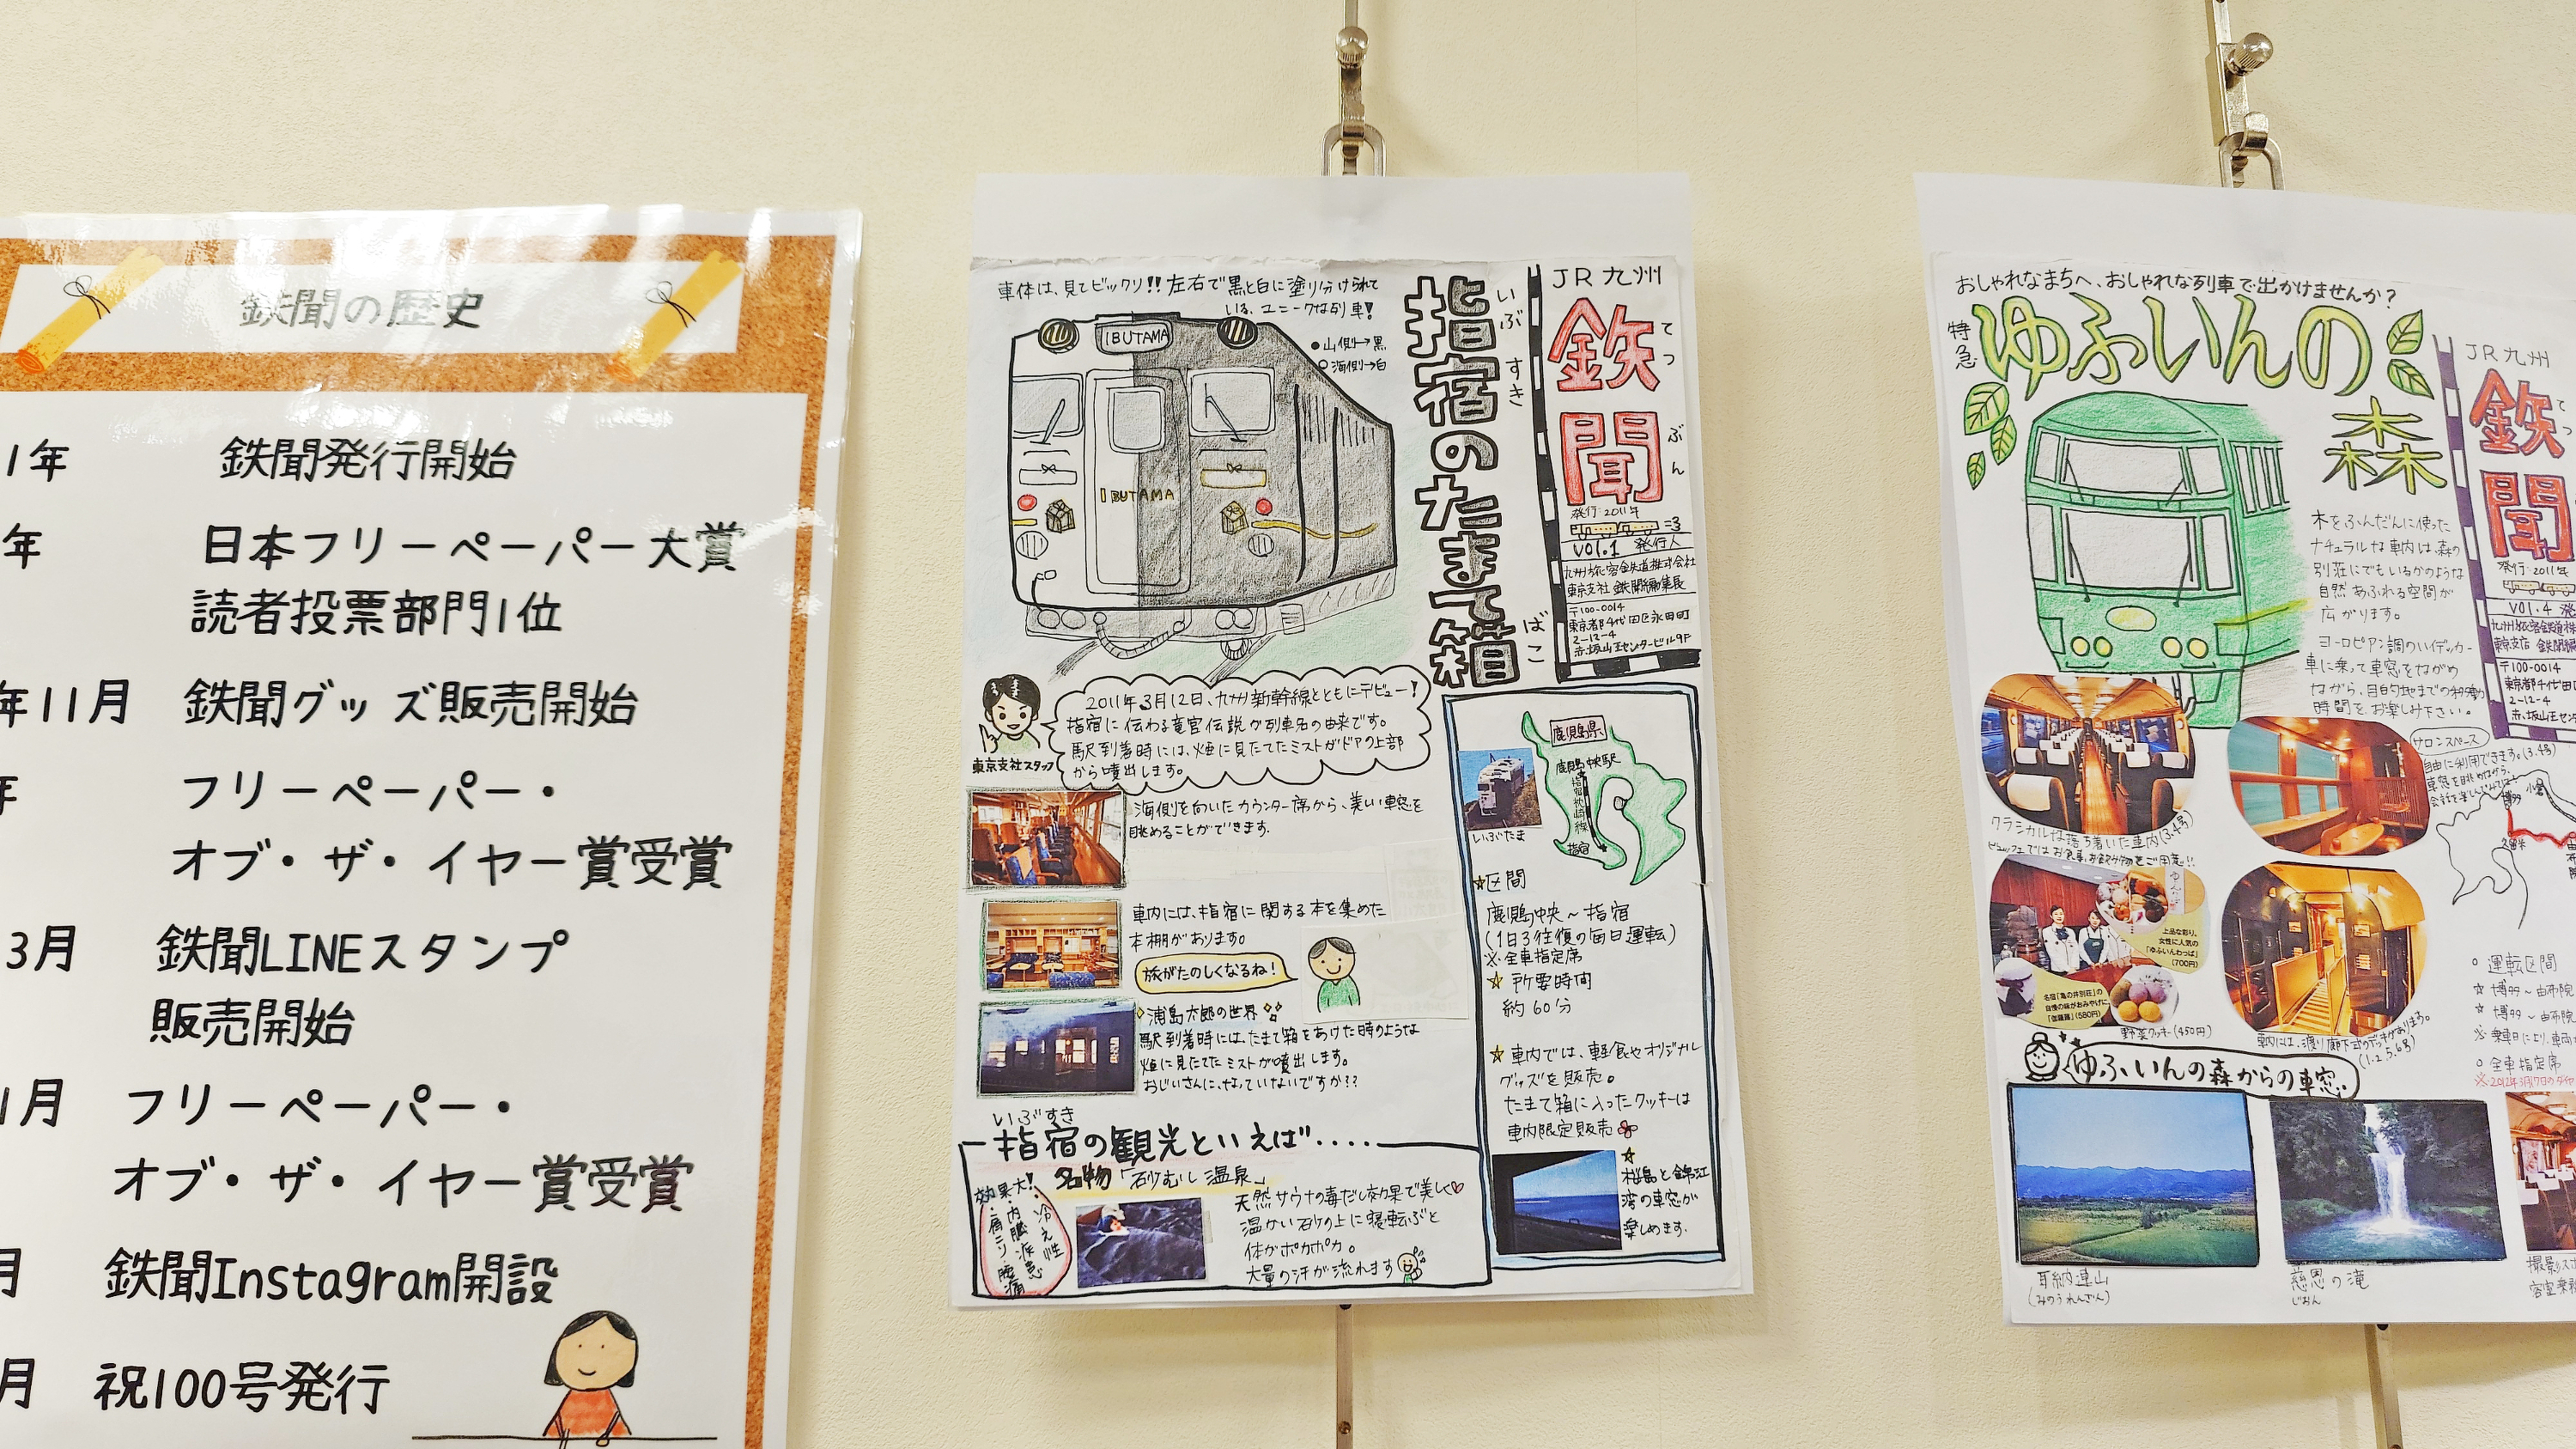 鉄聞の歴史
1年 鉄聞発行開始
年 日本フリーペーパー大賞
読者投票部門1位
年11月 鉄聞グッズ販売開始
年 フリーペーパー・
オブ・ザ・イヤー賞受賞
3月 鉄聞LINEスタンプ
販売開始
1月 フリーペーパー・
オブ・ザ・イヤー賞受賞
月 鉄聞Instagram開設
月 祝100号発行
車体は、見てビックリ!!左右で黒と白に塗り分けられて
いる、ユニークな列車!
●山側→黒
○海側→白
IBUTAMA
IBUTAMA
指宿のたまて箱
いぶすき
ばこ
JR九州
鉄聞
てつ
ぶん
発行:2011年
Vol.1 発行人
九州旅客鉄道株式会社
東京支社 鉄聞編集長
〒100-0014
東京都千代田区永田町
2-12-4
赤坂山王センタービル9F
2011年3月12日、九州新幹線とともにデビュー!
指宿に伝わる竜宮伝説が列車名の由来です。
駅到着時には、煙に見たてたミストがドアの上部
から噴出します。
東京支社スタッフ
海側を向いたカウンター席から、美しい車窓を
眺めることができます。
車内には、指宿に関する本を集めた
本棚があります。
旅がたのしくなるね!
浦島太郎の世界
駅到着時には、たまて箱をあけた時のような
煙に見たてたミストが噴出します。
おじいさんに、なっていないですか??
鹿児島県
鹿児島中央駅
指宿枕崎線
指宿
いぶたま
☆区間
鹿児島中央~指宿
(1日3往復の毎日運転)
※全車指定席
☆所要時間
約60分
☆車内では、軽食やオリジナル
グッズを販売。
たまて箱に入ったクッキーは
車内限定販売
☆
桜島と錦江
湾の車窓が
楽しめます。
いぶすき
指宿の観光といえば····
名物「砂むし温泉」
効果大!
冷え性
内臓疾患
肩コリ・腰痛
天然サウナの毒だし効果で美しく♡
温かい砂の上に寝転ぶと
体がポカポカ。
大量の汗が流れます
おしゃれなまちへ、おしゃれな列車で出かけませんか?
特急
ゆふいんの
森
木をふんだんに使った
ナチュラルな車内は、森の
別荘にでもいるかのような
自然あふれる空間が
広がります。
ヨーロピアン調のハイデッカー
車に乗って車窓をながめ
ながら、目的地までの移動
時間を、お楽しみ下さい。
JR九州
鉄
聞
発行:2011年
Vol.4
九州旅客鉄道株
東京支店 鉄聞編
〒100-0014
東京都千代田
2-12-4
赤坂山王セン
サロンスペース
クラシカルな落ち着いた車内(3.4号)
ビュッフェではお食事、お飲み物をご用意!!
上品な彩り、
女性に人気の
「ゆふいんわっぱ」
(700円)
名宿「亀の井別荘」の
自慢の味がおみやげに。
「伽羅蕗」(580円)
野菜クッキー(450円)
車内には、渡り廊下式のデッキがあります。
(1.2.5.6号)
小倉
博多
久留米
ゆふいんの森からの車窓
○運転区間
☆博多~由布院
☆博多~由布院
○全車指定席
耳納連山
(みのうれんざん)
慈恩の滝
じおん